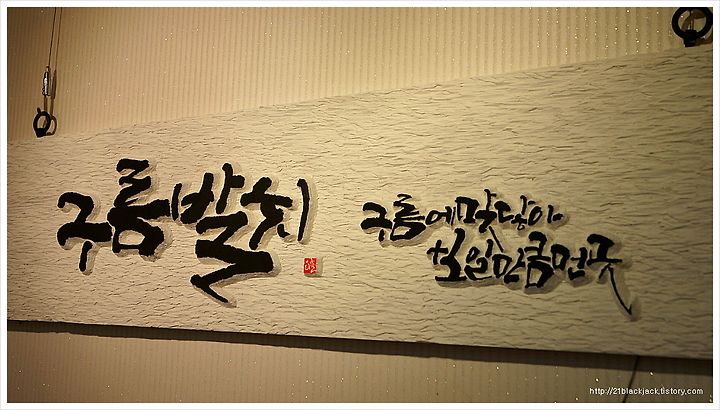 구름발치
구름에 맞닿아
보일만큼 먼 곳
http://21blackjack.tistory.com